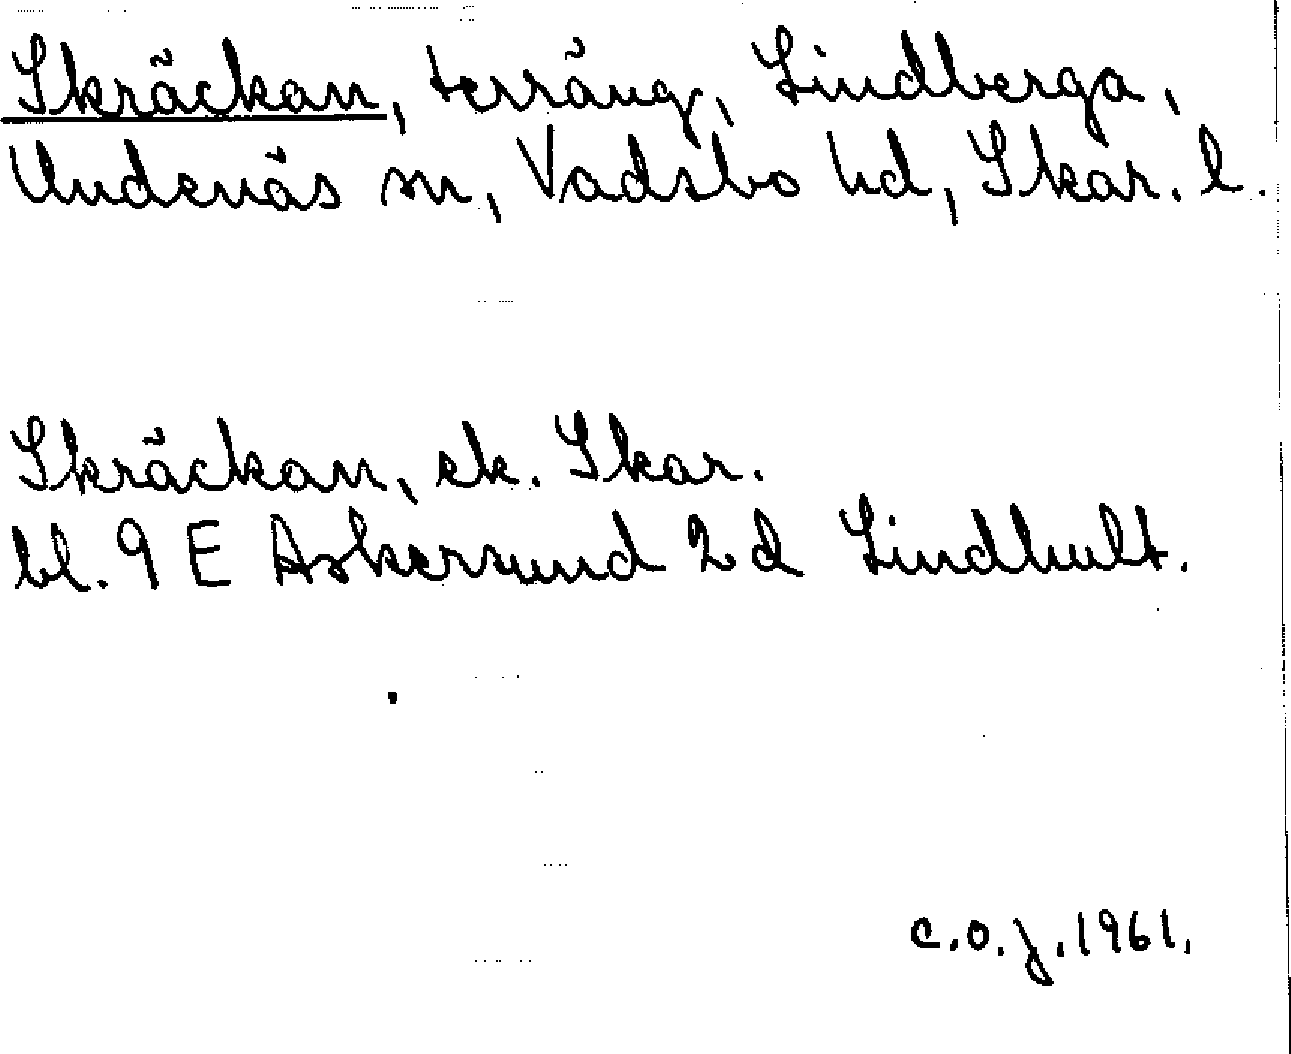 Skräckan, terräng, Lindberga,
Undenäs sn, Vadsbo hd, Skar. l.
Skräckan, ek. Skar.
bl. 9 E Askersund 2 d Lindhult.
C.O.J. 1961.